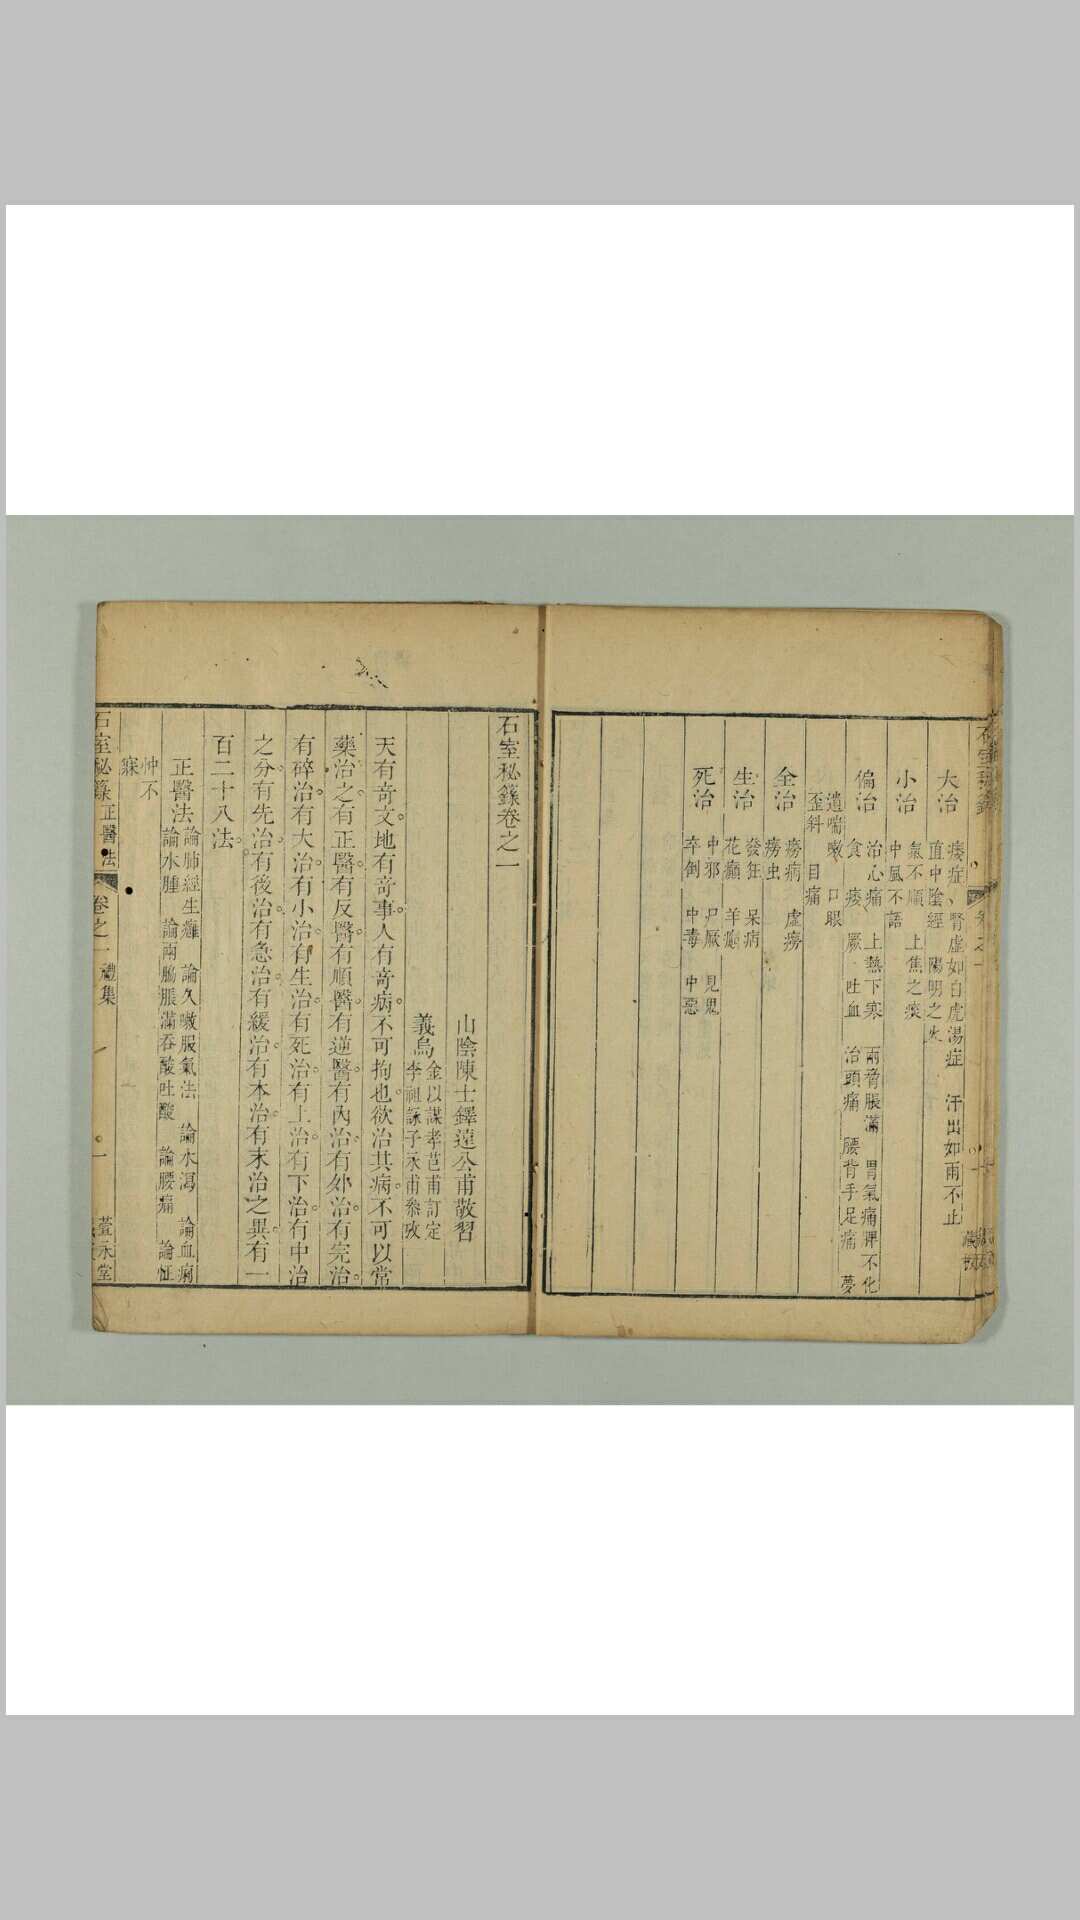 大治
痿症 腎虛如白虎湯症 汗出如雨不止
直中陰經 陽明之火
小治
氣不順 上焦之痰
中風不語
偏治
治心痛 上熱下寒 兩脅脹滿 胃氣痛脾不化
食 痿 厥 吐血 治頭痛 腰背手足痛 夢
遺喘嗽 口眼
歪斜 目痛
全治
癆病 虛癆
癆虫
生治
發狂 呆病
花癲 羊癲
死治
中邪 尸厥 見鬼
卒倒 中毒 中惡
石室秘籙卷之一
山陰陳士鐸遠公甫敬習
義烏
金以謀孝芑甫訂定
李祖詠子永甫叅攷
天有竒文地有竒事人有竒病不可拘也欲治其病不可以常
藥治之有正醫有反醫有順醫有逆醫有內治有外治有完治
有碎治有大治有小治有生治有死治有上治有下治有中治
之分有先治有後治有急治有緩治有本治有末治之異有一
百二十八法
正醫法
論肺經生癰 論久嗽服氣法 論水瀉 論血痢
論水腫 論兩脇脹滿吞酸吐酸 論腰痛 論怔
忡不
寐
石室秘籙 正醫法 卷之一 禮集 一 萱永堂